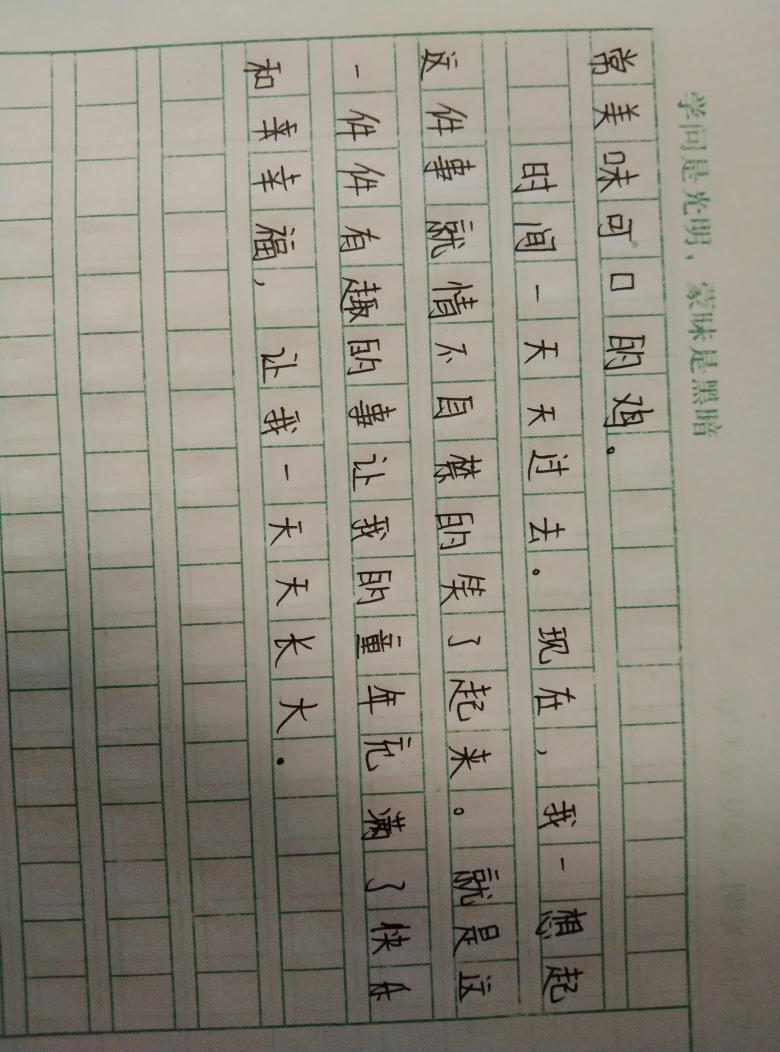 学问是光明，蒙昧是黑暗
常美味可口的鸡。
时间一天天过去。现在，我一想起
这件事就情不自禁的笑了起来。就是这
一件件有趣的事让我的童年充满了快乐
和幸幸福，让我一天天长大.